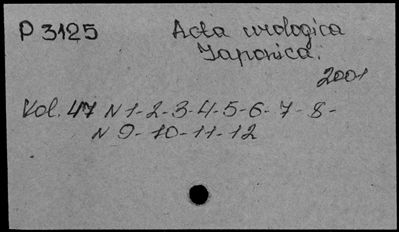 P 3125 Acta urologica
Japonica.
2001
Vol. 47 N 1-2-3-4-5-6-7-8-
N 9-10-11-12